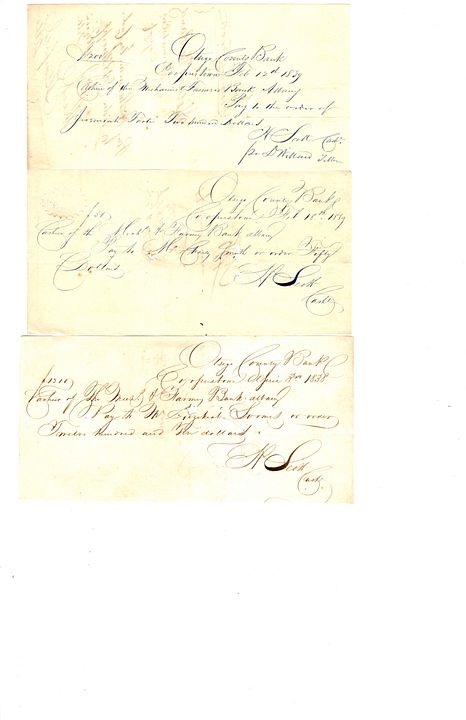 Otsego County Bank
$200 Cooperstown Feb 12th 1839
Cashier of the Mechanics & Farmers Bank Albany
Pay to the order of
Jeremiah Two hundred Dollars
H Scott Cash.
pr D Willard Teller
Otsego County Bank
$50 Cooperstown Feb 18th 1839
Cashier of the Mech & Farms Bank Albany
Pay to Mr or order Fifty
Dollars
H Scott
Cash.
Otsego County Bank
$1210 Cooperstown 1838
Cashier of The Mech & Farms Bank Albany
Pay to Mr or order
Twelve hundred and Ten dollars
H Scott
Cash.